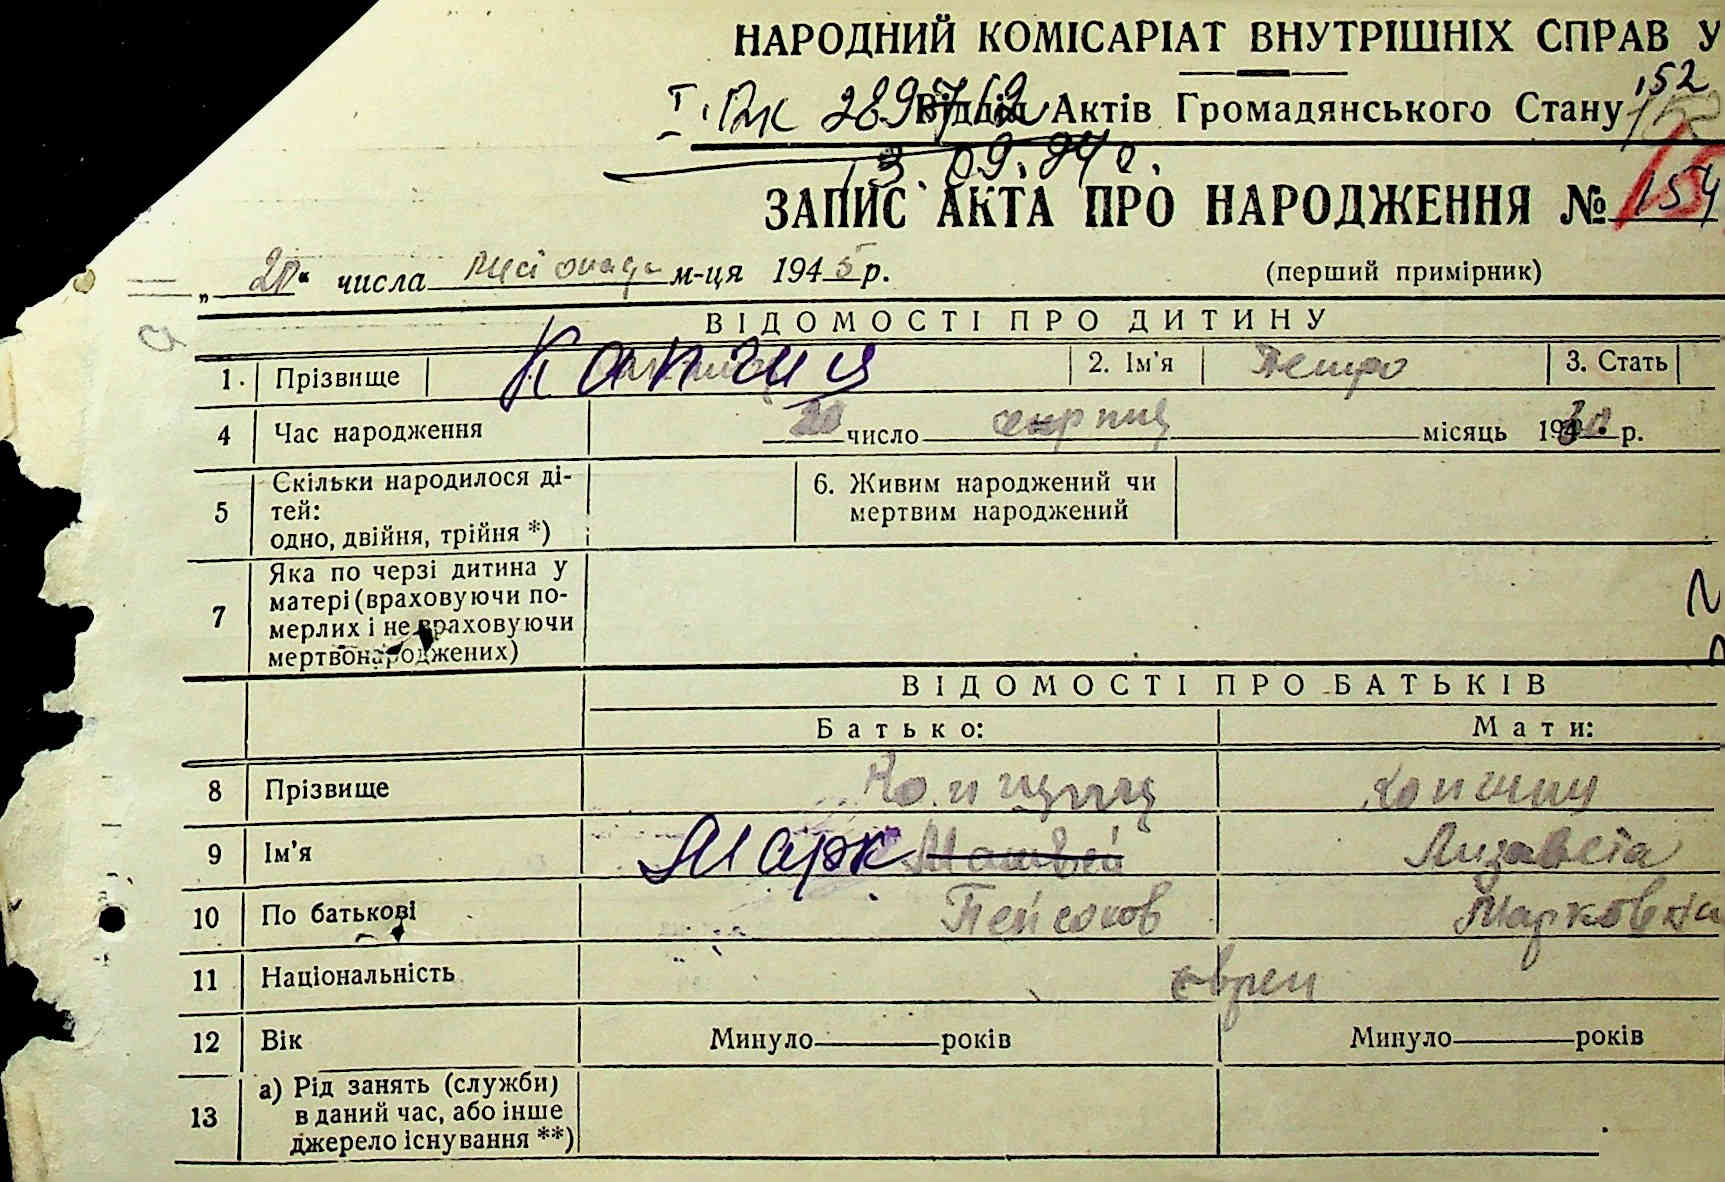 НАРОДНИЙ КОМІСАРІАТ ВНУТРІШНІХ СПРАВ У
152
Відділ Актів Громадянського Стану
13.09.94 г.
ЗАПИС АКТА ПРО НАРОДЖЕННЯ № 154
„20“ числа листопада м-ця 1945 р. (перший примірник)
ВІДОМОСТІ ПРО ДИТИНУ
1. Прізвище Капчиц 2. Ім'я Петро 3. Стать
4 Час народження 20 число серпня місяць 1930 р.
5 Скільки народилося ді-
тей:
одно, двійня, трійня *)
6. Живим народжений чи
мертвим народжений
7 Яка по черзі дитина у
матері (враховуючи по-
мерлих і не враховуючи
мертвонароджених)
ВІДОМОСТІ ПРО БАТЬКІВ
Батько: Мати:
8 Прізвище
9 Ім'я Марк Матвей Лизавета
10 По батькові Пейсахов Марковна
11 Національність евреи
12 Вік Минуло років Минуло років
13 а) Рід занять (служби)
в даний час, або інше
джерело існування **)